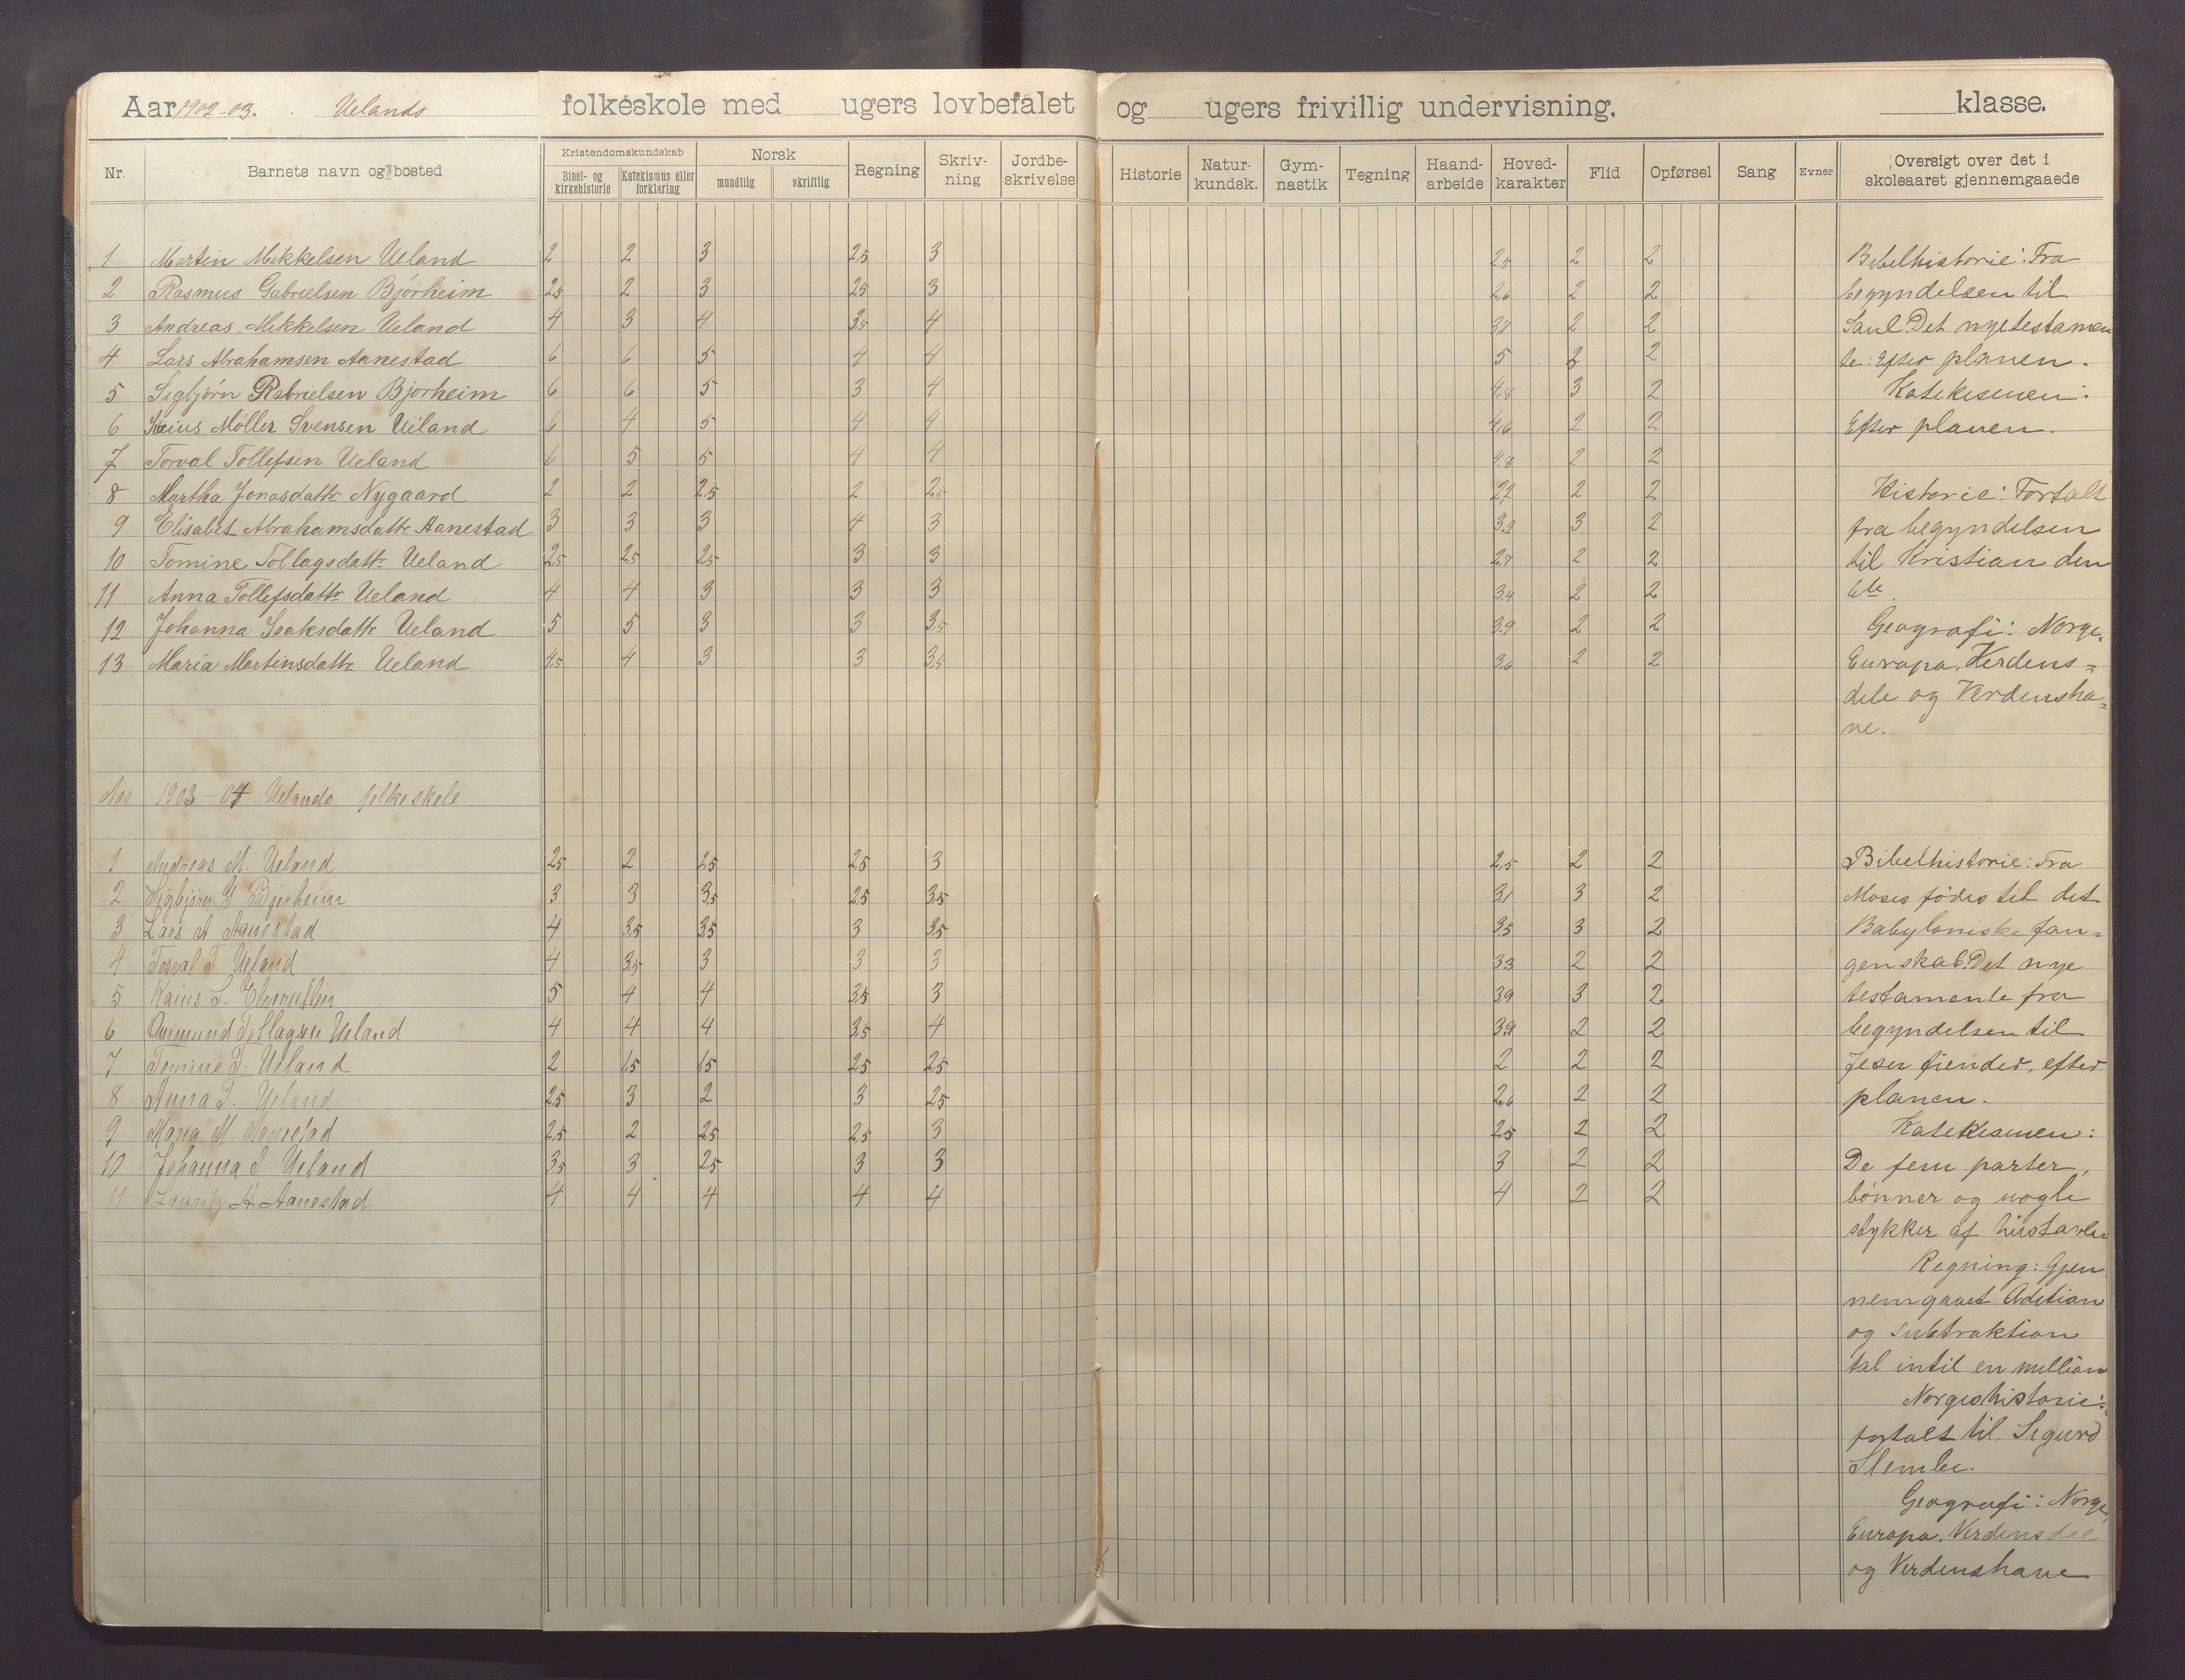 Aar 1902-03. Uelands folkeskole med ugers lovbefalet og ugers frivillig undervisning. klasse.
Nr. Barnets navn og bosted Kristendomskundskab Bibel- og kirkehistorie Katekismus eller forklaring Norsk mundtlig skriftlig Regning Skriv-ning Jordbe-skrivelse Historie Natur-kundsk. Gym-nastik Tegning Haand-arbeide Hoved-karakter Flid Opførsel Sang Evner Oversigt over det i skoleaaret gjennemgaaede
1 Martin Mikkelsen Ueland 2 2 3 2,5 3 2,5 2 2 Bibelhistorie: Fra
2 Rasmus Gabrielsen Bjórheim 2,5 2 3 2,5 3 2,6 2 2 begyndelsen til
3 Andreas Mikkelsen Ueland 4 3 4 3,5 4 3,7 2 2 Saul. Det nye testamen
4 Lars Abrahamsen Aanestad 6 6 5 4 4 5 2 2 te: Efter planen.
5 Sigbjórn Gabrielsen Bjorheim 6 6 5 3 4 4,8 3 2 Katekismen:
6 Kaius Móller Svensen Ueland 6 4 5 4 4 4,6 2 2 Efter planen.
7 Torval Tollefsen Ueland 6 5 5 4 4 4,8 2 2
8 Martha Jonasdattr Nygaard 2 2 2,5 2 2,5 2,2 2 2 Historie: Fortalt
9 Elisabet Abrahamsdattr Aanestad 3 3 3 4 3 3,2 3 2 fra begyndelsen
10 Tomine Tollagsdattr Ueland 2,5 2,5 2,5 3 3 2,7 2 2 til Kristian den
11 Anna Tollefsdattr Ueland 4 4 3 3 3 3,4 2 2 6te.
12 Johanna Isaksdattr Ueland 5 5 3 3 3,5 3,9 2 2 Geografi: Norge,
13 Maria Martinsdattr Ueland 4,5 4 3 3 3,5 3,6 2 2 Europa. Verdens=
dele og Verdensha=
ne.
Aar 1903-04 Uelands folkeskole
1 Andreas M. Ueland 2,5 2 2,5 2,5 3 2,5 2 2 Bibelhistorie: Fra
2 Sigbjórn G Bjorheim 3 3 3,5 2,5 3,5 3,1 3 2 Moses fódes til det
3 Lars A Aanestad 4 3,5 3,5 3 3,5 3,5 3 2 Babyloniske fan=
4 Torval T Ueland 4 3,5 3 3 3 3,3 2 2 genskab. Det nye
5 Kaius S. 5 4 4 3,5 3 3,9 3 2 testamente fra
6 Ommund Tollagsen Ueland 4 4 4 3,5 4 3,9 2 2 begyndelsen til
7 Tomine T. Ueland 2 1,5 1,5 2,5 2,5 2 2 2 Jesu fiender, efter
8 Anna T. Ueland 2,5 3 2 3 2,5 2,6 2 2 planen.
9 Maria M. Aanestad 2,5 2 2,5 2,5 3 2,5 2 2 Katekismen:
10 Johanna I Ueland 3,5 3 2,5 3 3 3 2 2 De fem parter,
11 Lauritz A Aanestad 4 4 4 4 4 4 2 2 bónner og nogle
stykker af hustavlen
Regning: Gjen
nemgaaet Adition
og Subtraktion
tal intil en million
Norgeshistorie:
fortalt til Sigurd
Slembe.
Geografi: Norge,
Europa. Verdensdele
og Verdenshave